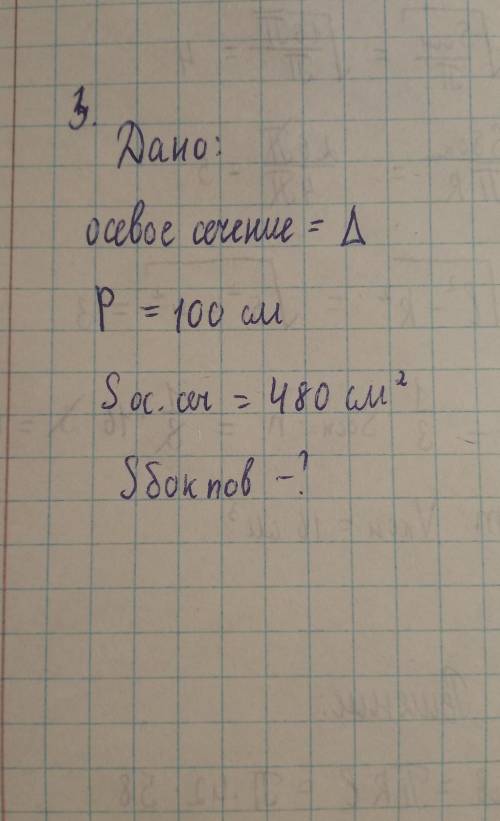 3.
Дано:
осевое сечение = Δ
P = 100 см
S ос. сеч = 480 см²
Sбок пов -?